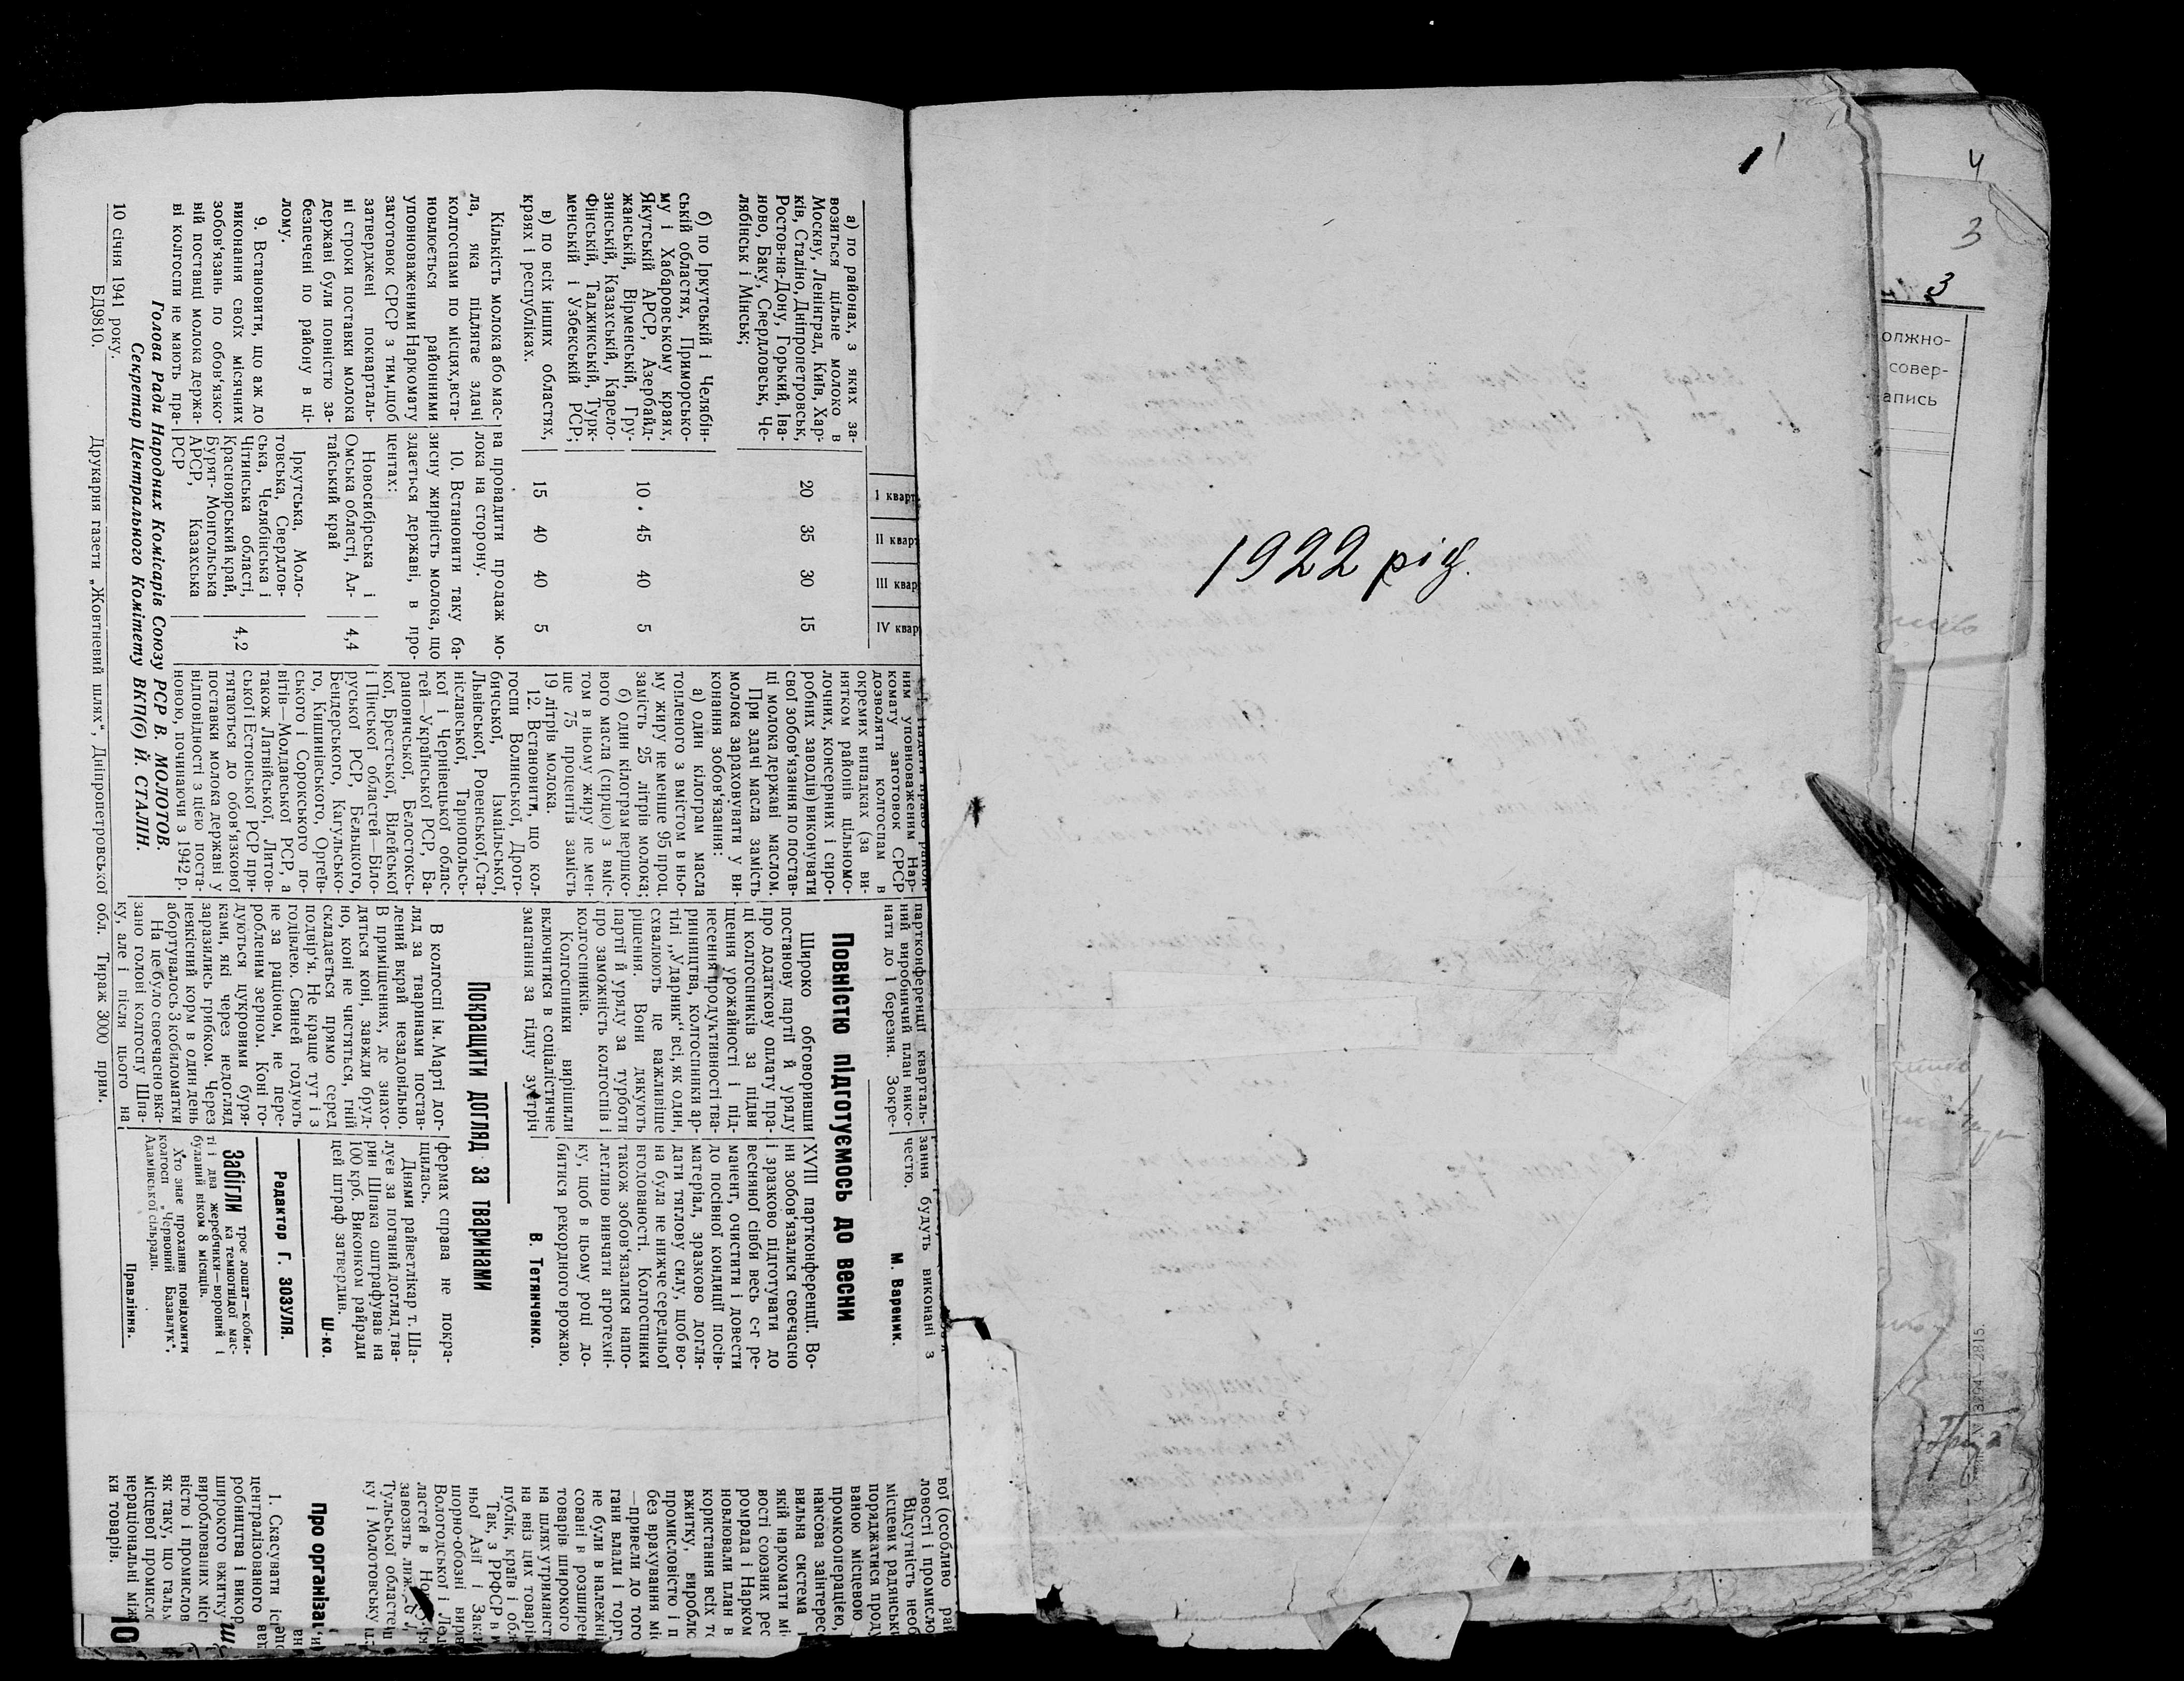 а) по районах, з яких за-
возиться цільне молоко в
Москву, Ленінград, Київ, Хар-
ків, Сталіно, Дніпропетровськ,
Ростов-на-Дону, Горький, Іва-
ново, Баку, Свердловськ, Че-
лябінськ і Мінськ;
I кварт
II кварт
III квар
IV квар
20 35 30 15
б) по Іркутській і Челябін-
ській областях, Приморсько-
му і Хабаровському краях,
Якутській АРСР, Азербайд-
жанській, Вірменській, Гру-
зинській, Казахській, Карело-
Фінській, Таджикській, Турк-
менській і Узбекській РСР;
10 45 40 5
в) по всіх інших областях,
краях і республіках.
15 40 40 5
Кількість молока або мас-
ла, яка підлягає здачі
колгоспами по місцях, вста-
новлюється районними
уповноваженими Наркомату
заготовок СРСР з тим, щоб
затверджені поквarталь-
ні строки поставки молока
державі були повністю за-
безпечені по району в ці-
лому.
9. Встановити, що аж до
виконання своїх місячних
зобов'язань по обов'язко-
вій поставці молока держа-
ві колгоспи не мають пра-
ва провадити продаж мо-
лока на сторону.
10. Встановити таку ба-
зисну жирність молока, що
здається державі, в про-
центах:
Новосибірська і
Омська області, Ал-
тайський край
4,4
Іркутська, Моло-
товська, Свердлов-
ська, Челябінська і
Чітинська області,
Красноярський край,
Бурят-Монгольська
АРСР, Казахська
РСР
4,2
ним уповноваженим Нар-
комату заготовок СРСР
дозволяти колгоспам в
окремих випадках (за ви-
нятком районів цільномо-
лочних, консервних і сиро-
робних заводів) виконувати
свої зобов'язання по постав-
ці молока державі маслом.
При здачі масла замість
молока зараховувати у ви-
конання зобов'язання:
а) один кілограм масла
топленого з вмістом в ньо-
му жиру не менше 95 проц.
замість 25 літрів молока;
б) один кілограм вершко-
вого масла (сирцю) з вміс-
том в ньому жиру не мен-
ше 75 процентів замість
19 літрів молока.
12. Встановити, що кол-
госпи Волинської, Дрого-
бичської, Ізмаїльської,
Львівської, Ровенської, Ста-
ніславської, Тарнопольсь-
кої і Чернівецької облас-
тей—Української РСР, Ба-
рановичської, Белостоксь-
кої, Брестської, Вілейської
і Пінської областей—Біло-
руської РСР, Бельцкого,
Бендерського, Кагульсько-
го, Кишинівського, Оргеїв-
ського і Сорокського по-
вітів—Молдавської РСР, а
також Латвійської, Литов-
ської і Естонської РСР при-
тягаються до обов'язкової
поставки молока державі у
відповідності з цією поста-
новою, починаючи з 1942 р.
Голова Ради Народних Комісарів Союзу РСР В. МОЛОТОВ.
Секретар Центрального Комітету ВКП(б) Й. СТАЛІН.
10 січня 1941 року.
партконференції кварталь-
ний виробничий план вико-
нати до 1 березня. Зокре-
зання будуть виконані з
честю.
М. Вареник.
Повністю підготуємось до весни
Широко обговоривши
постанову партії й уряду
про додаткову оплату пра-
ці колгоспників за підви
щення урожайності і під-
несення продуктивності тва-
ринництва, колгоспники ар-
тілі „Ударник" всі, як один,
схвалюють це важливіше
рішення. Вони дякують
партії й уряду за турботи
про заможність колгоспів і
колгоспників.
Колгоспники вирішили
включитися в соціалістичне
змагання за гідну зустріч
XVIII партконференції. Во-
ни зобов'язалися своєчасно
і зразково підготувати до
весняної сівби весь с-г ре-
манент, очистити і довести
до посівної кондиції посів-
матеріал, зразково догля-
дати тяглову силу, щоб во-
на була не нижче середньої
вгодованості. Колгоспники
також зобов'язалися напо-
легливо вивчати агротехні-
ку, щоб в цьому році до-
битися рекордного врожаю.
В. Тетянченко.
Покращити догляд за тваринами
В колгоспі ім. Марті дог-
ляд за тваринами постав-
лений вкрай незадовільно.
В приміщеннях, де знахо-
дяться коні, завжди бруд-
но, коні не чистяться, гній
складається прямо серед
подвір'я. Не краще тут і з
годівлею. Свиней годують
не за раціоном, не пере-
робленим зерном. Коні го-
дуються цукровими буря-
ками, які через недогляд
заразились грибком. Через
неякісний корм в один день
абортувалось 3 кобиломатки
На це було своєчасно вка-
зано голові колгоспу Шпа-
ку, але і після цього на
фермах справа не покра-
щилась.
Днями райветлікар т. Ша-
луєв за поганий догляд тва-
рин Шпака оштрафував на
100 крб. Виконком райради
цей штраф затвердив.
Ш-ко.
Редактор Г. ЗОЗУЛЯ.
Забігли троє лошат—кобил-
ка темногнідої мас-
ті і два жеребчики—вороний і
буланий віком 8 місяців.
Хто знає прохання повідомити
колгосп „Червоний Базавлук",
Адамівської сільради.
Правління.
БД9810. Друкарня газети „Жовтневий шлях", Дніпропетровської обл. Тираж 3000 прим.
вої (особливо рай
ловості і промисло
Відсутність необ
місцевих радянськи
поряджатися проду
ваною місцевою
промкооперацією,
нансова заінтерес
вильна система
якій наркомати мі
вості союзних рес
ромрада і Нарком
новлювали план в
користання всіх то
вжитку, виробл
промисловістю і п
без врахування міс
—привели до того
гани влади і торгу
не були в належні
совані в розширен
товарів широкого
на шлях утриманст
на ввіз цих товарі
публік, країв і обл
Так, з РРФСР в
ньої Азії і Зака
шорно-обозні виро
Вологодської і Лен
ластей в
завозять
Тульської області
ку і Молотовську
Про організац
1. Скасувати існ
централізованого
робництва і викор
широкого вжитку
вироблюваних місц
вістю і промислов
як таку, що гальм
місцевої промисло
нераціональні між
ки товарів.
10
1
1922 рік.
4
3
3
олжно-
совер-
апись